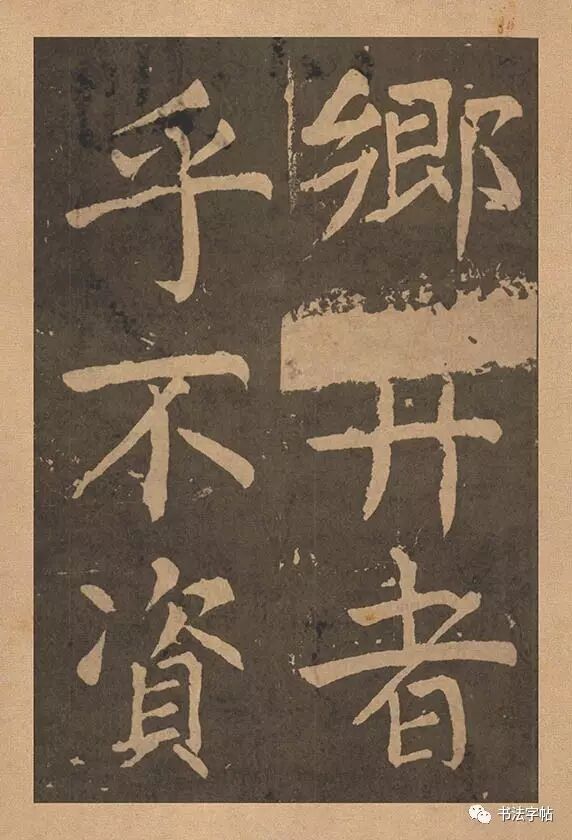 鄉井者
乎不資
书法字帖